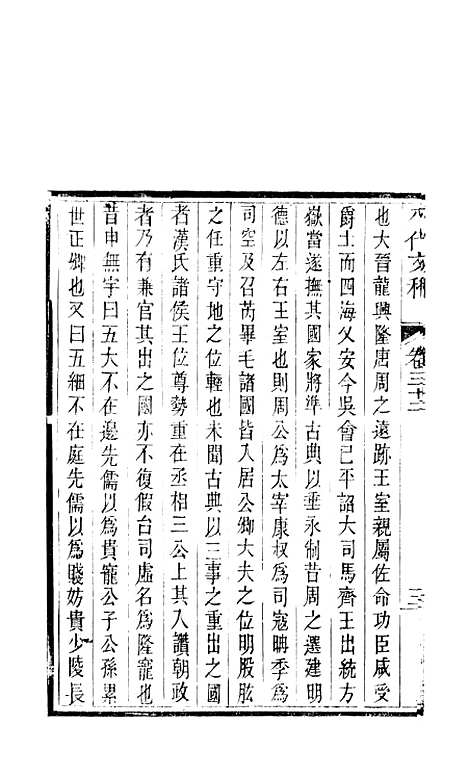 卷三十二
也大晉龍興隆唐周之遠跡王室親屬佐命功臣咸受
爵土而四海乂安今吳會已平詔大司馬齊王出統方
嶽當遂撫其國家將準古典以垂永制昔周之選建明
德以左右王室也則周公爲太宰康叔爲司寇聃季爲
司空及召芮畢毛諸國皆入居公卿大夫之位明股肱
之任重守地之位輕也未聞古典以三事之重出之國
者漢氏諸侯王位尊勢重在丞相三公上其入讚朝政
者乃有兼官其出之國亦不復假台司虛名爲隆寵也
昔申無宇曰五大不在邊先儒以爲貴寵公子公孫累
世正卿也又曰五細不在庭先儒以爲賤妨貴少陵長